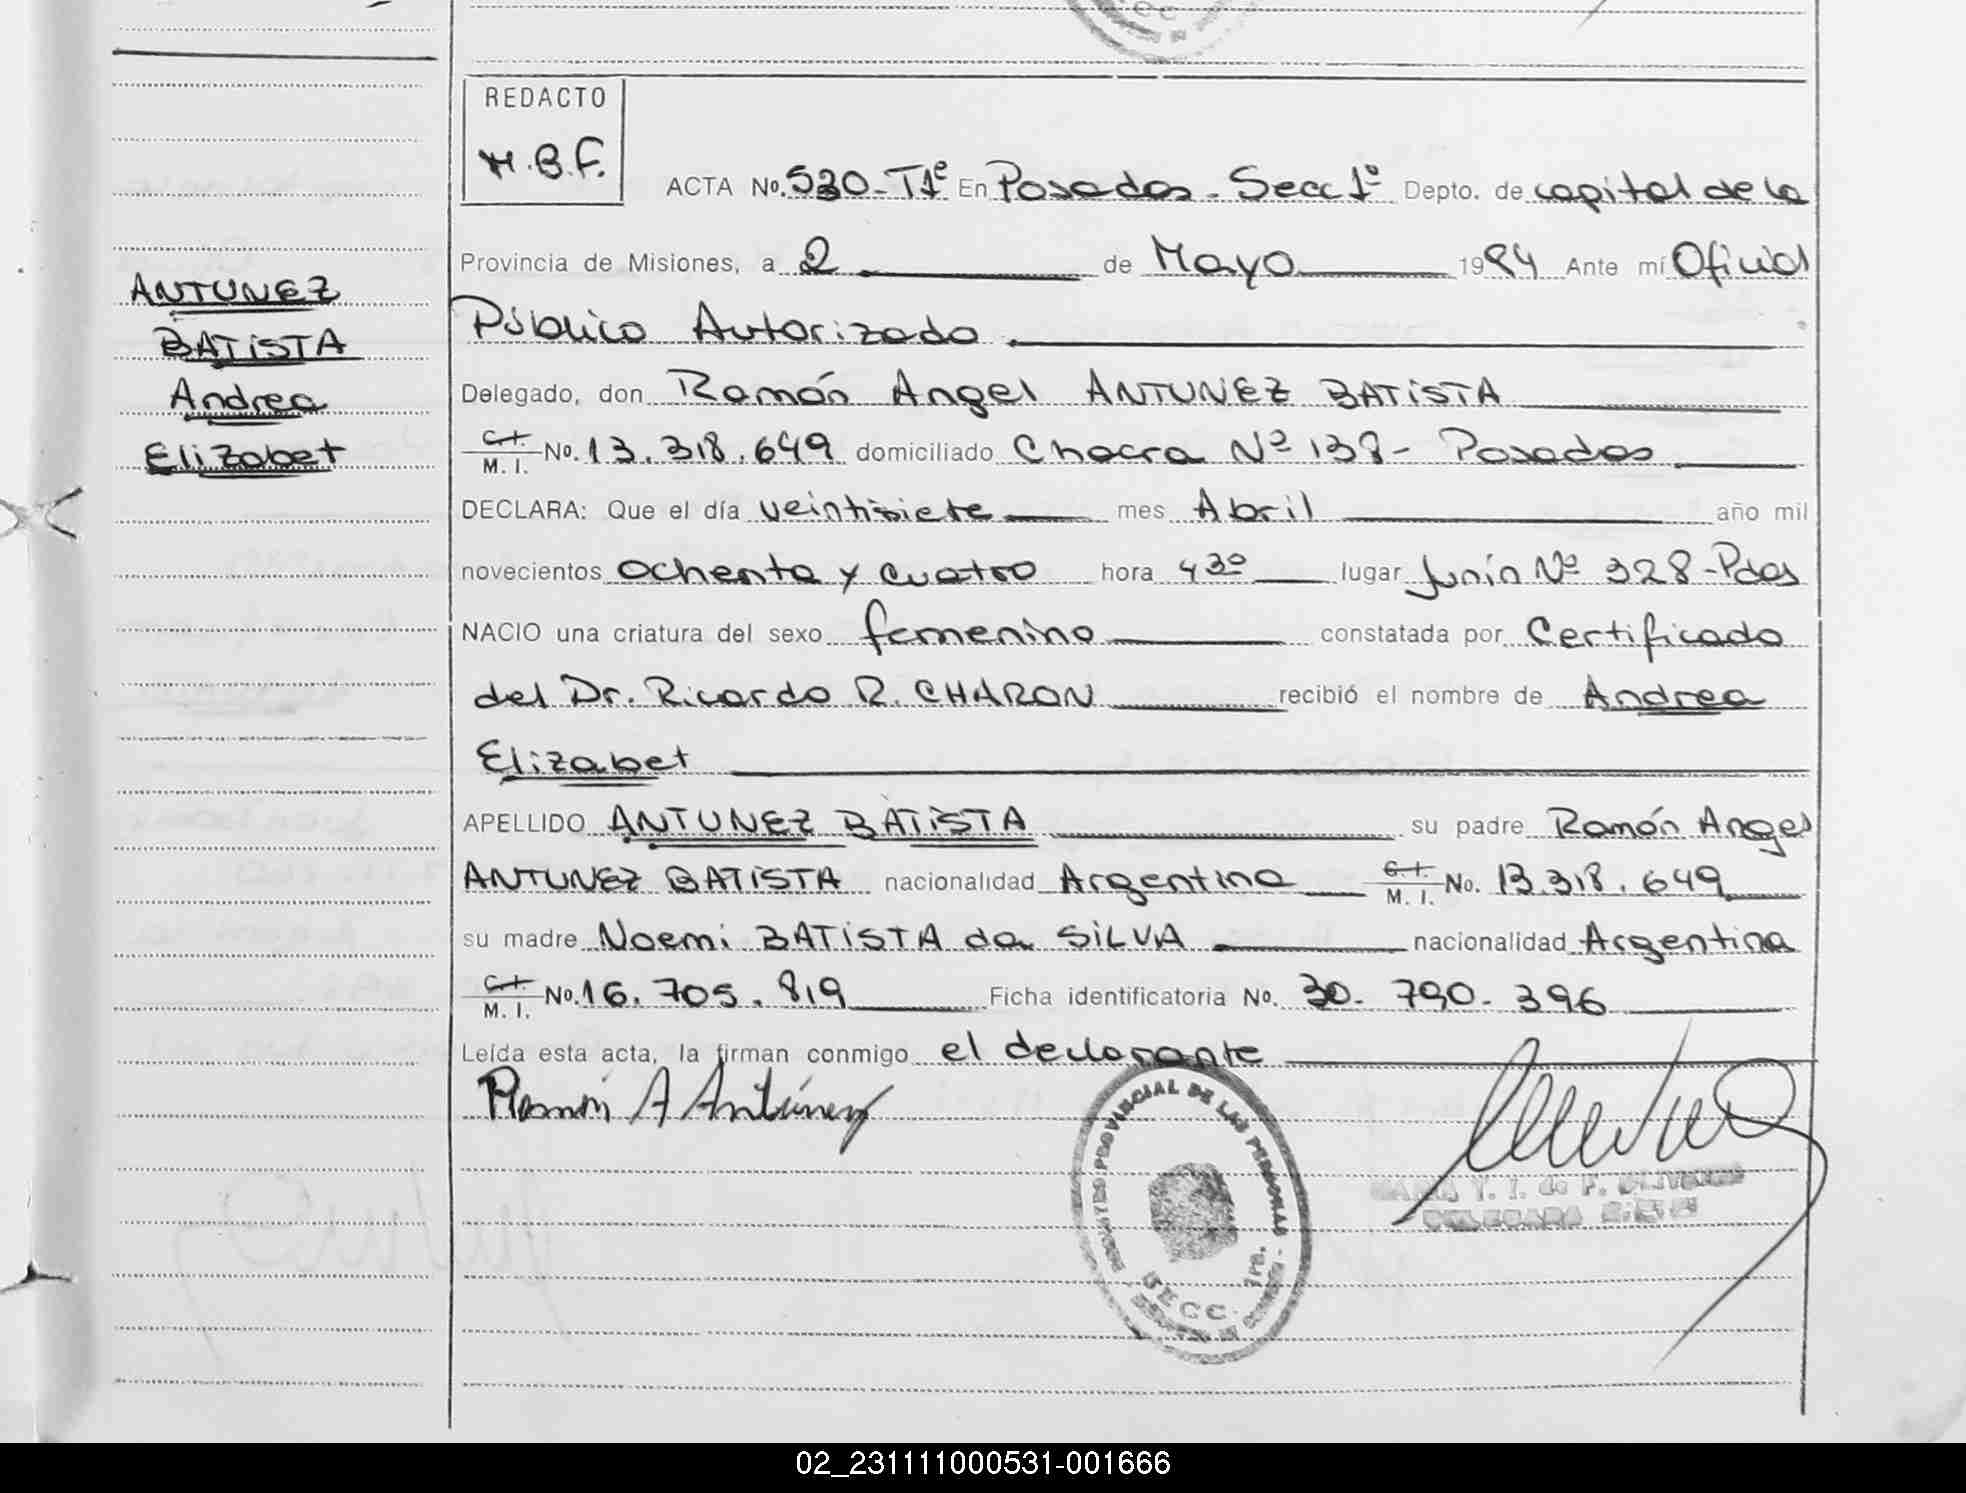 REDACTO
M.B.F.
ACTA No. 530-T1º En Posadas - Secc 1º Depto. de capital de la
Provincia de Misiones, a 2 de Mayo 1984 Ante mí Oficial
Público Autorizado
ANTUNEZ
BATiSTA
Andrea
Elizabet
Delegado, don Ramón Angel ANTUNEZ BATiSTA
C.I. M. I. No. 13.318.649 domiciliado Chacra Nº 138- Posadas
DECLARA: Que el día veintisiete mes Abril año mil
novecientos ochenta y cuatro hora 4 30 lugar Junín Nº 328-Pdas
NACIO una criatura del sexo femenino constatada por Certificado
del Dr. Ricardo R. CHARON recibió el nombre de Andrea
Elizabet
APELLIDO ANTUNEZ BATiSTA su padre Ramón Angel
ANTUNEZ BATiSTA nacionalidad Argentina C.I. M. I. No. 13.318.649
su madre Noemi BATiSTA da SiLVA nacionalidad Argentina
C.I. M. I. No. 16.705.819 Ficha identificatoria No. 30-790-396
Leída esta acta, la firman conmigo el declarante
Ramón A Antúnez
PROVINCIAL DE LAS PERSONAS
SECC. 1ra.
MARIA Y. I. de F.
02_231111000531-001666